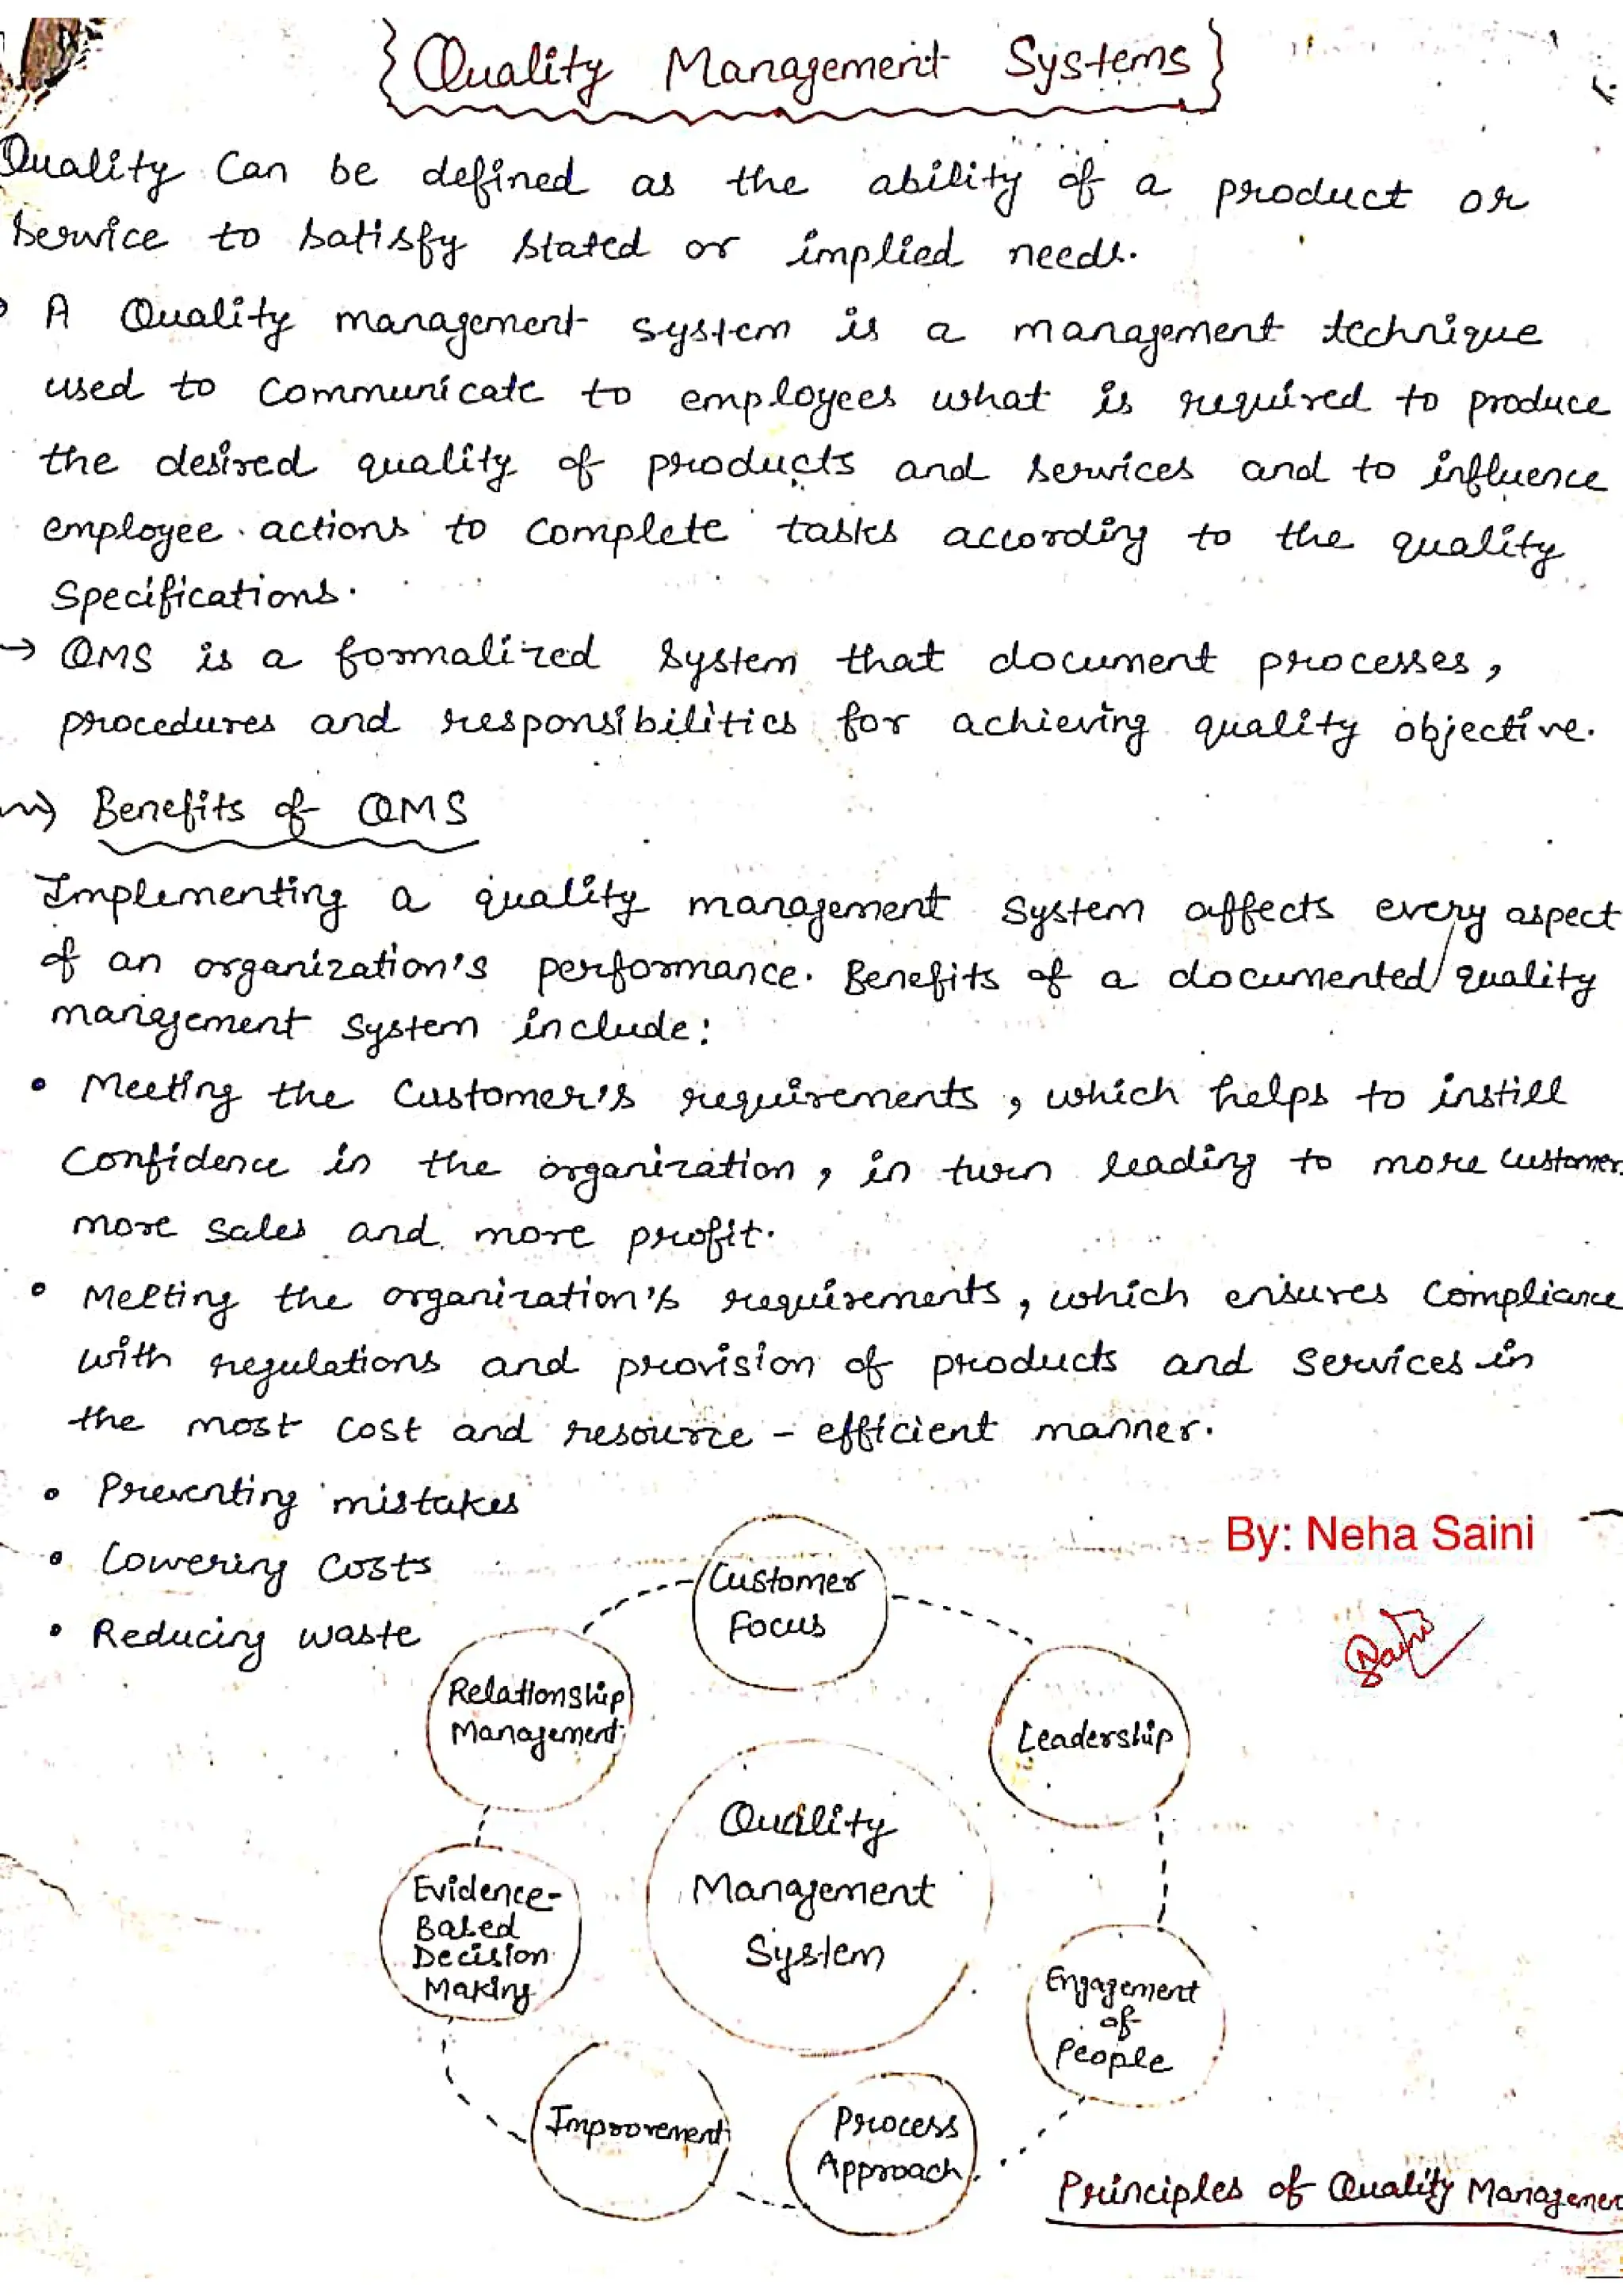 {Quality Management Systems}
Quality Can be defined as the ability of a product or
service to satisfy stated or implied needs.
A Quality management system is a management technique
used to communicate to employees what is required to produce
the desired quality of products and services and to influence
employee actions to complete tasks according to the quality
Specifications.
→ QMS is a formalized system that document processes,
procedures and responsibilities for achieving quality objective.
Benefits of QMS
Implementing a quality management System affects every aspect
of an organization's performance. Benefits of a documented quality
management System include:
• Meeting the Customer's requirements, which helps to instill
Confidence in the organization, in turn leading to more customer
more sales and more profit.
• Meeting the organization's requirements, which ensures Compliance
with regulations and provision of products and services in
the most cost and resource - efficient manner.
• Preventing mistakes
• Lowering Costs
• Reducing waste
By: Neha Saini
Saini
Customer
Focus
Relationship
Management
Leadership
Quality
Management
System
Evidence-
Based
Decision
Making
Engagement
of
People
Improvement
Process
Approach
Principles of Quality Managemen